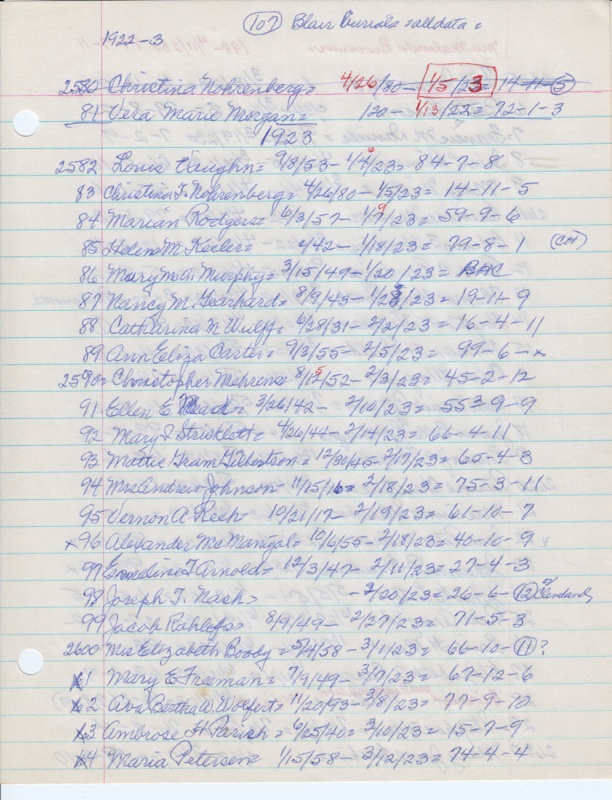 (107) Blair burials = alldata =
1922-3
2580 Christina Nohrenberg = 4/26/80 - 1/5/23 = 14-11-5
81 Vera Marie Morgan = /20 - 1/13/22 = 72-1-3
1923
2582 Louis Vaughn = 9/8/53 - 1/4/23 = 84-7-8
83 Christina F. Nohrenberg = 4/26/80 - 1/5/23 = 14-11-5
84 Marian Rodgers = 6/3/57 - 1/9/23 = 59-9-6
85 Helen M Keeler = 4/42 - 1/18/23 = 79-8-1
86 Mary Murphy = 3/15/49 - 1/20/23 = BHC
87 Nancy M. Gearhard = 8/9/43 - 1/28/23 = 19-11-9
88 Catharina N Wulff = 6/28/31 - 2/2/23 = 16-4-11
89 Ann Eliza Carter = 9/3/55 - 2/5/23 = 99-6-x
2590 = Christopher Mehrens 8/15/52 - 2/3/23 = 45-2-12
91 Ellen E = 3/26/42 - 2/10/23 = 553-9-9
92 Mary J Stricklett = 4/26/44 - 2/14/23 = 66-4-11
93 Mattie Gram Gilbertson = 12/30/45 - 2/17/23 = 65-4-3
94 Mrs Andrew Johnson - 11/15/16 = 2/18/23 = 75-3-11
95 Vernon A Resh - 10/21/17 - 2/19/23 = 61-10-7
x 96 Alexander McManigal = 10/6/55 - 2/18/23 = 40-10-9
97 T Arnold = 12/3/47 - 2/11/23 = 27-4-3
98 Joseph T. Nash = - 2/20/23 = 26-6-(12)
99 Jacob Rahlfs = 8/9/49 - 2/27/23 = 71-5-3
2600 Mrs Elizabeth Boody = 5/4/58 - 3/1/23 = 66-10-(11)?
x1 Mary E Freeman = 7/9/49 - 3/7/23 = 67-12-6
x2 Ava Bertha Wolfert = 11/20/93 - 3/8/23 = 77-9-10
x3 Ambrose H Parish = 6/25/40 = 3/10/23 = 15-7-9
x4 Maria Petersen 1/15/58 - 3/12/23 = 74-4-4